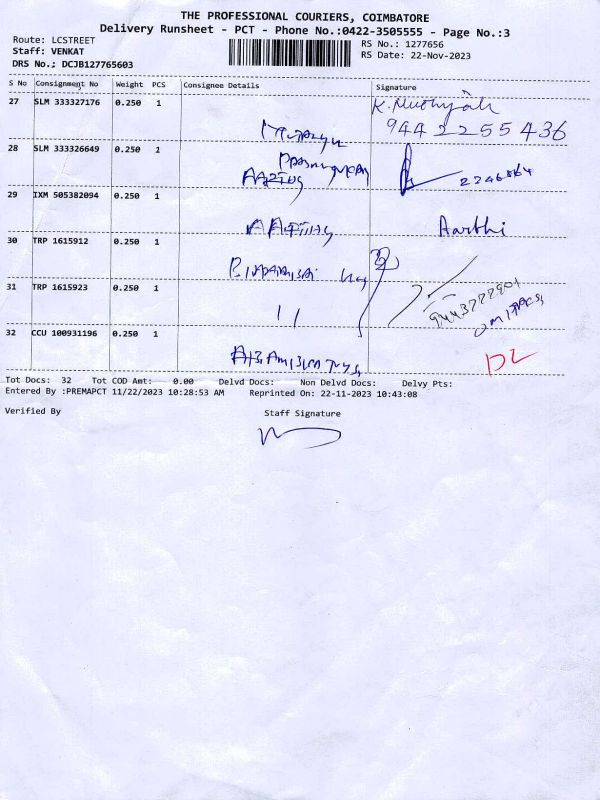 THE PROFESSIONAL COURIERS, COIMBATORE
Delivery Runsheet - PCT - Phone No.:0422-3505555 - Page No.:3
Route: LCSTREET
Staff: VENKAT
DRS No.: DCJB127765603
RS No.: 1277656
RS Date: 22-Nov-2023
S No Consignment No Weight PCS Consignee Details Signature
27 SLM 333327176 0.250 1
9442255436
28 SLM 333326649 0.250 1
29 IXM 505382094 0.250 1 Aarthi
30 TRP 1615912 0.250 1
31 TRP 1615923 0.250 1 11
32 CCU 100931196 0.250 1 DL
Tot Docs: 32 Tot COD Amt: 0.00 Delvd Docs: Non Delvd Docs: Delvy Pts:
Entered By :PREMAPCT 11/22/2023 10:28:53 AM Reprinted On: 22-11-2023 10:43:08
Verified By Staff Signature